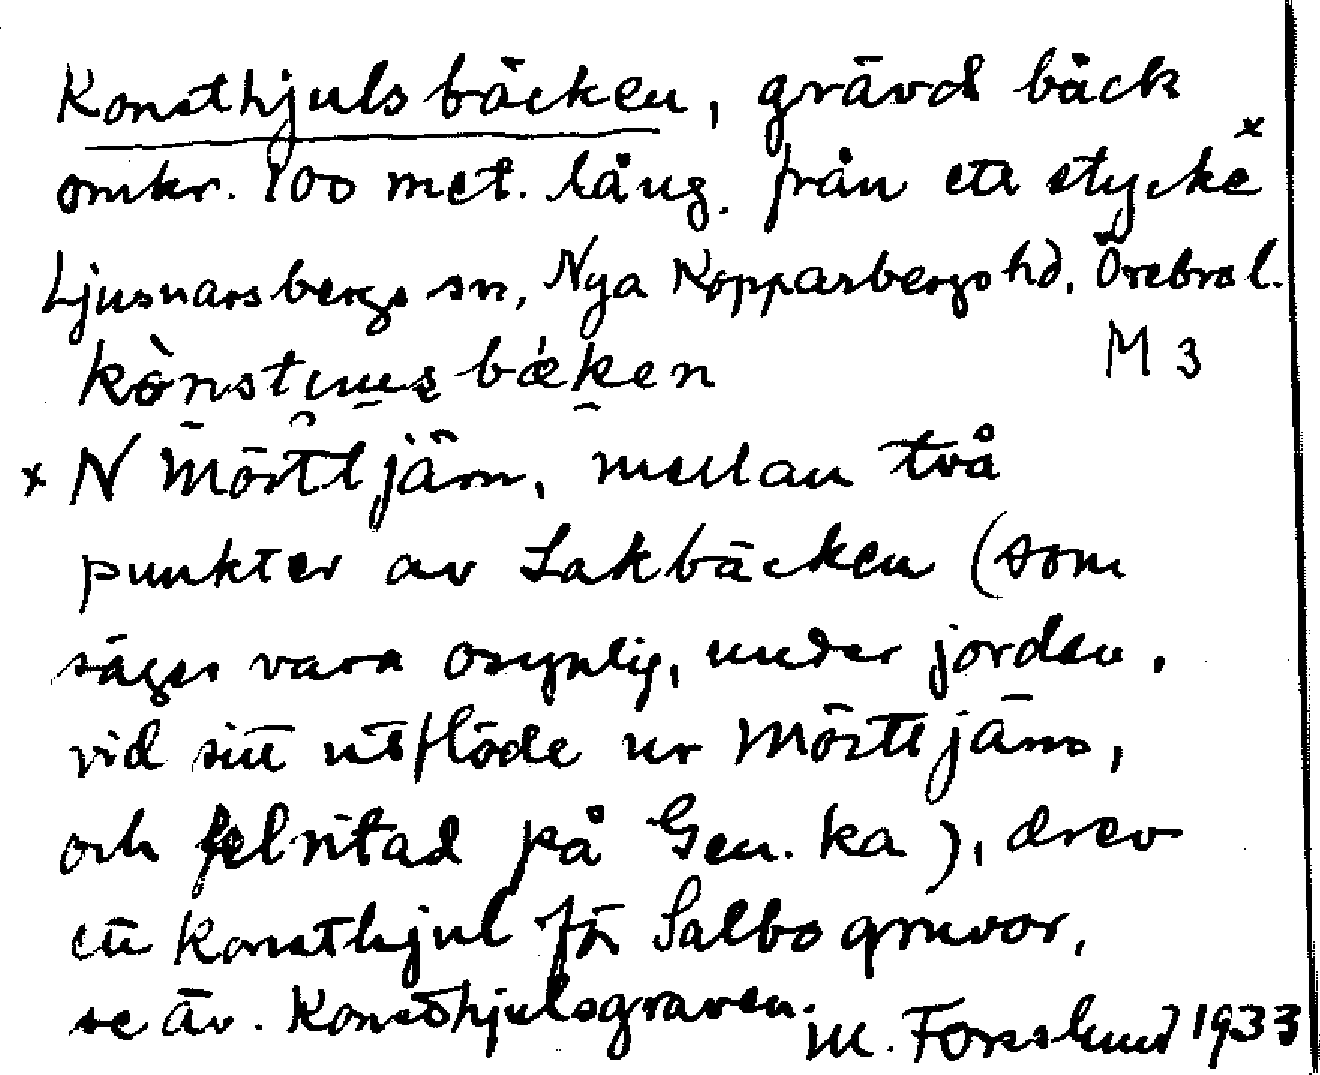 Konsthjulsbäcken, grävd bäck
omkr. 100 met. lång. från ett stycke x
Ljusnarsbergs sn, Nya Kopparbergs hd, Örebro l.
M 3
x N Mörttjärn, mellan två
punkter av Lakbäcken (som
säges vara osynlig, under jorden,
vid sitt utflöde ur Mörttjärn,
och felritad på Gen. ka), drev
ett konsthjul för Salbo gruvor,
se äv. Konsthjulsgraven.
M. Forsslund 1933